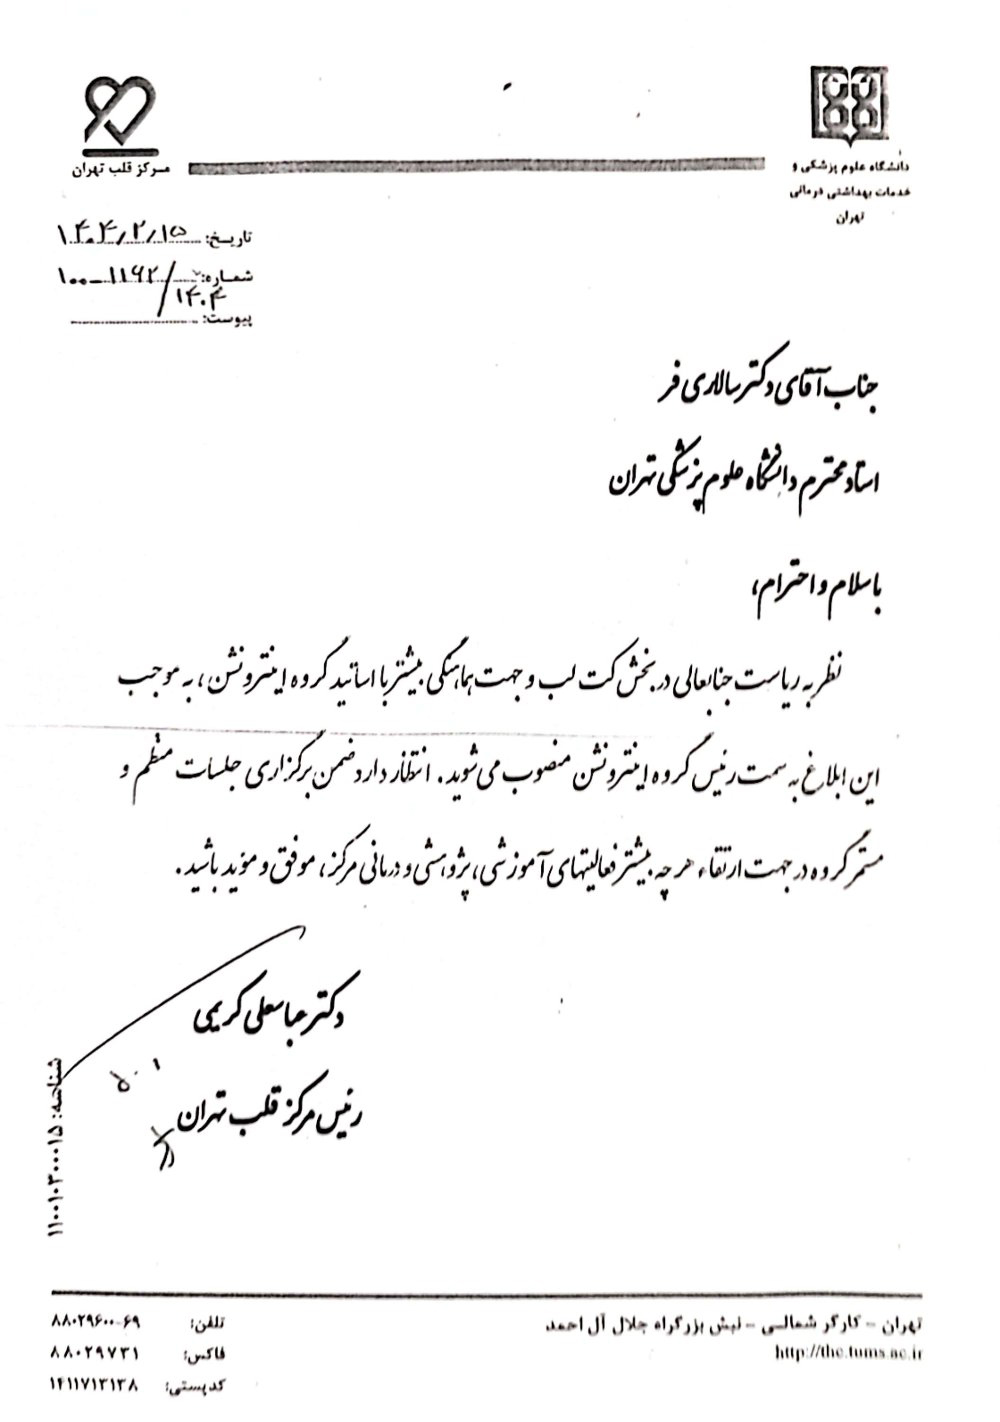 مرکز قلب تهران
دانشگاه علوم پزشکی و
خدمات بهداشتی درمانی
تهران
تاریخ: ۱۴۰۴/۲/۱۵
شماره: ۱۰۰-۱۱۶۲/۱۴۰۴
پیوست:
جناب آقای دکتر سالاری فر
استاد محترم دانشگاه علوم پزشکی تهران
با سلام و احترام،
نظر به ریاست جنابعالی در بخش کت لب و جهت هماهنگی بیشتر با اساتید گروه اینترونشن، به موجب
این ابلاغ به سمت رئیس گروه اینترونشن منصوب می شوید. انتظار دارد ضمن برگزاری جلسات منظم و
مستمر گروه در جهت ارتقاء هر چه بیشتر فعالیتهای آموزشی، پژوهشی و درمانی مرکز، موفق و موید باشید.
دکتر عباسعلی کریمی
رئیس مرکز قلب تهران
شناسه: ۱۱۰۰۱۰۳۰۰۰۱۵
تهران - کارگر شمالی - نبش بزرگراه جلال آل احمد
http://thc.tums.ac.ir
تلفن: ۸۸۰۲۹۶۰۰-۶۹
فاکس: ۸۸۰۲۹۷۳۱
کدپستی: ۱۴۱۱۷۱۳۱۳۸